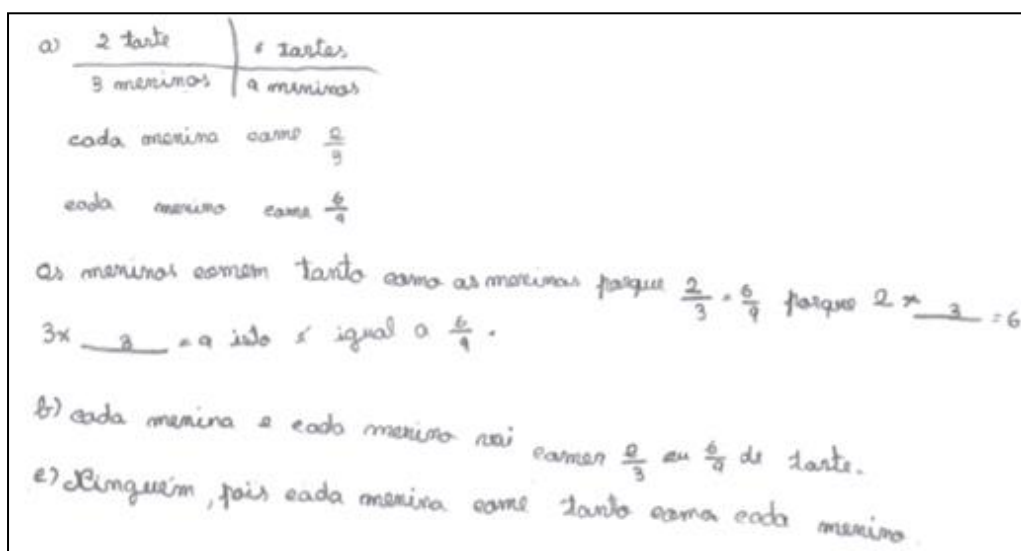 a) 2 tarte | 6 tartes
3 meninos | 9 meninos
cada menina come 2/3
cada menino come 6/9
os meninos comem tanto como as meninas porque 2/3 = 6/9 porque 2 x 3 = 6
3x 3 = 9 isto é igual a 6/9.
b) cada menina e cada menino vai comer 2/3 ou 6/9 de tarte.
c) Ninguém, pois cada menina come tanto como cada menino.